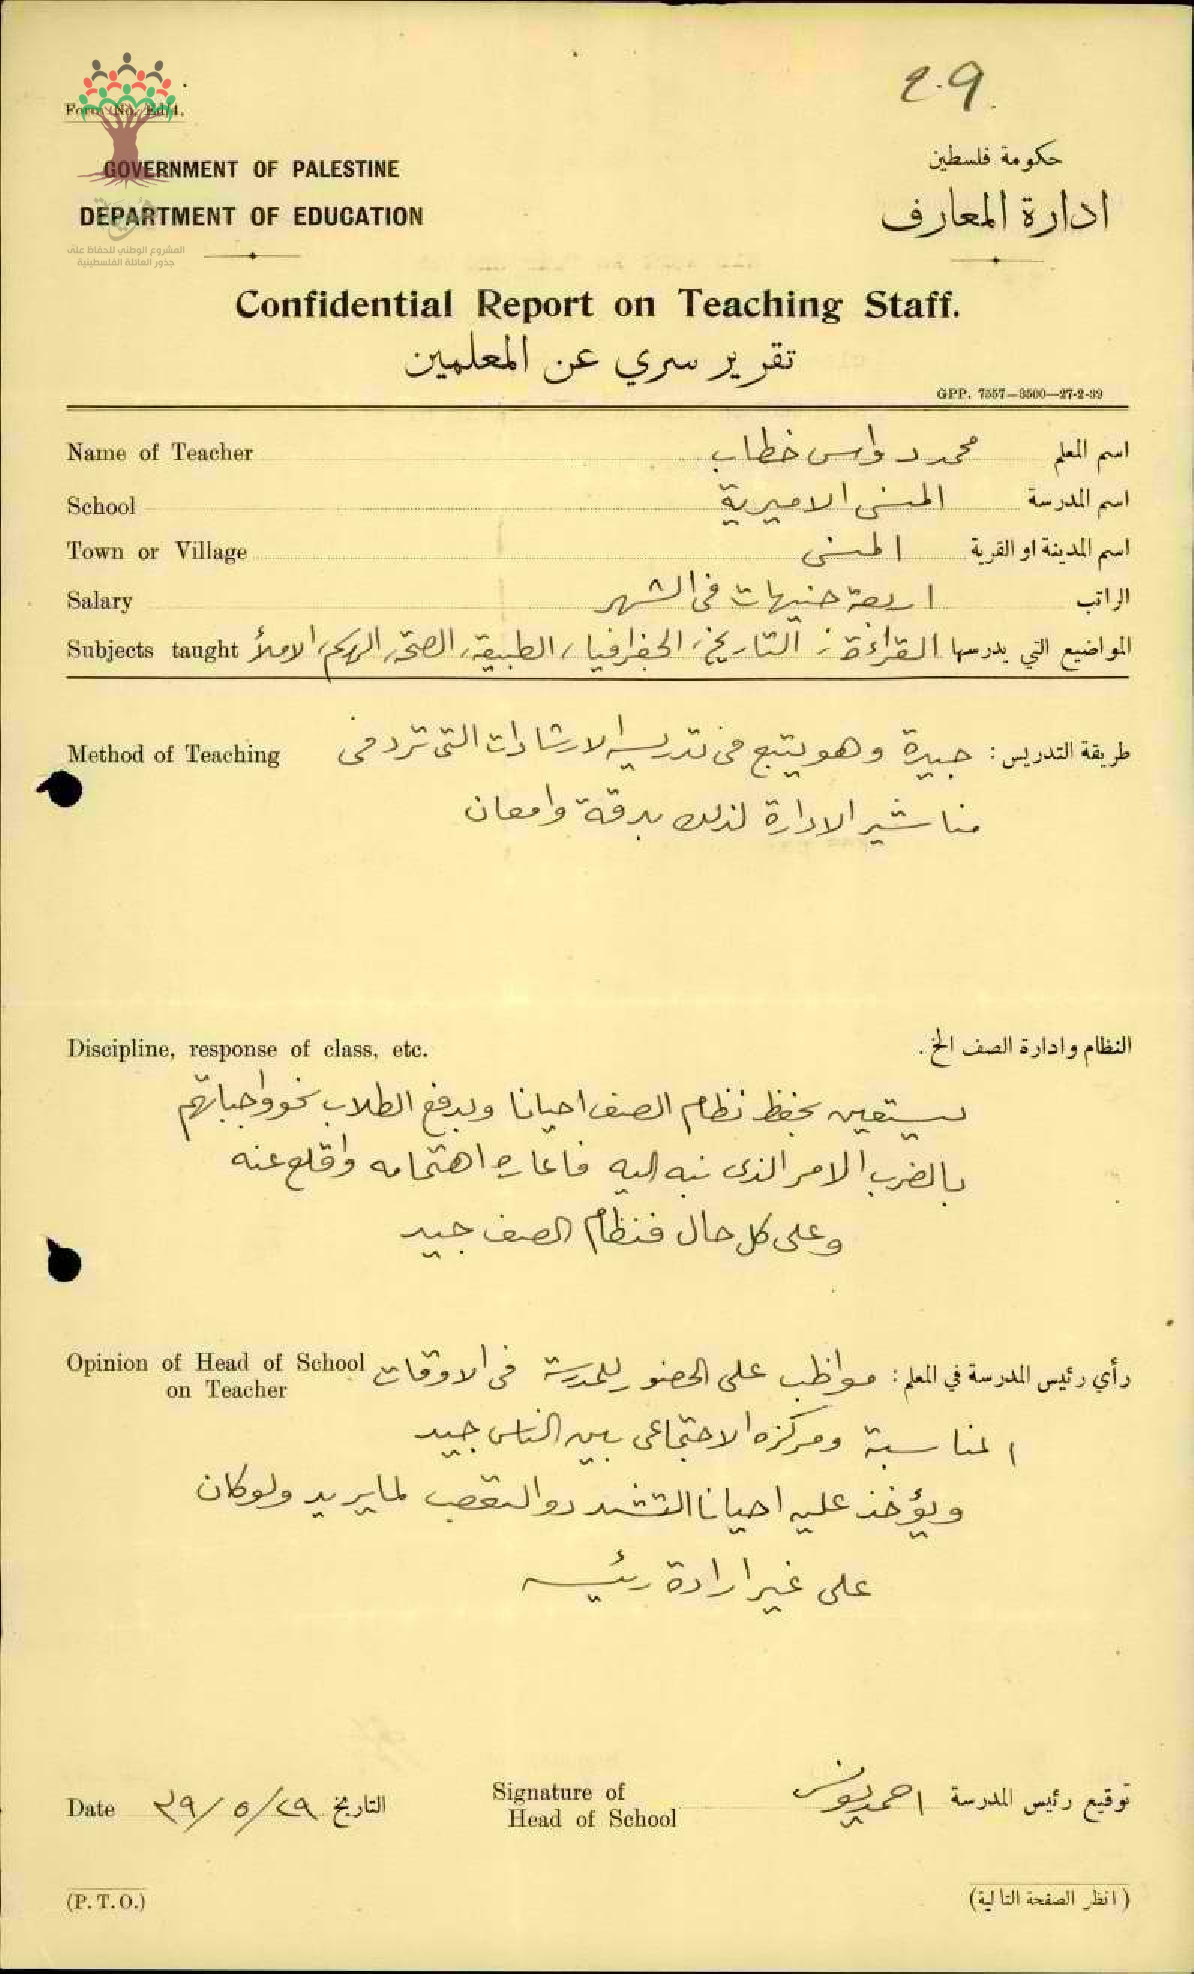 Form No. Ed/4.
٤٠٩
GOVERNMENT OF PALESTINE
حكومة فلسطين
DEPARTMENT OF EDUCATION
ادارة المعارف
المشروع الوطني للحفاظ على
جذور العائلة الفلسطينية
Confidential Report on Teaching Staff.
تقرير سري عن المعلمين
GPP. 7557—3500—27-2-39
Name of Teacher محمد دواس خطاب اسم المعلم
School المنسى الاميرية اسم المدرسة
Town or Village المنسى اسم المدينة او القرية
Salary اربعة جنيهات في الشهر الراتب
Subjects taught المواضيع التي يدرسها القراءة، التاريخ، الجغرافيا، الطبيعة، الصحة، الرسم، الاملأ
Method of Teaching طريقة التدريس : جيدة وهو يتبع في تدريسه الارشادات التى ترد في
مناشير الادارة لذلك بدقة وامعان
Discipline, response of class, etc. النظام وادارة الصف الخ.
يستعين بحفظ نظام الصف احيانا وبدفع الطلاب نحو واجباتهم
بالضرب الامر الذى نبه اليه فاعاره اهتمامه واقلع عنه
وعلى كل حال فنظام الصف جيد
Opinion of Head of School on Teacher رأي رئيس المدرسة في المعلم : مواظب على الحضور للمدرسة في الاوقات
المناسبة ومركزه الاجتماعى بين الناس جيد
ويؤخذ عليه احيانا التشدد والتعصب لما يريد ولو كان
على غير ارادة رئيسه
Date ٢٩/٥/٣٩ التاريخ
Signature of Head of School احمد يونس توقيع رئيس المدرسة
(P.T.O.)
(انظر الصفحة التالية)